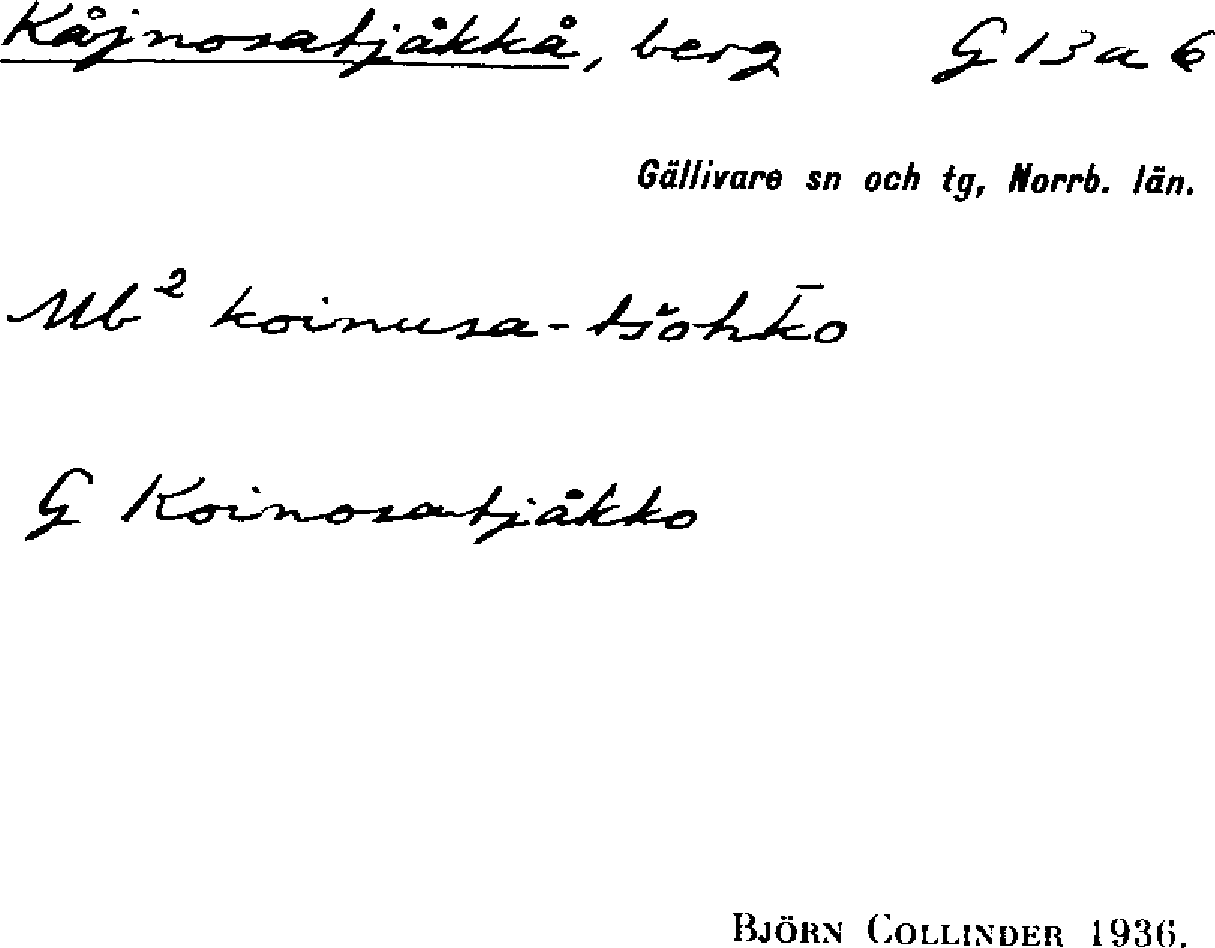 Kåjnosatjåkkå, berg G 13 a 6
Gällivare sn och tg, Norrb. län.
Mb² koinusa-tšohk̄o
G Koinosatjåkko
BJÖRN COLLINDER 1936.